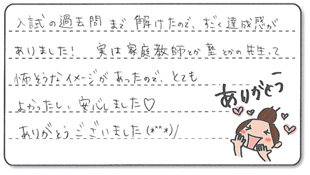 入試の過去問まで解けたので、すごく達成感が
ありました! 実は家庭教師とか塾とかの先生って
怖そうなイメージがあったので、とても
よかったし、安心しました♡
ありがとうございました(*^^*)/
ありがとう